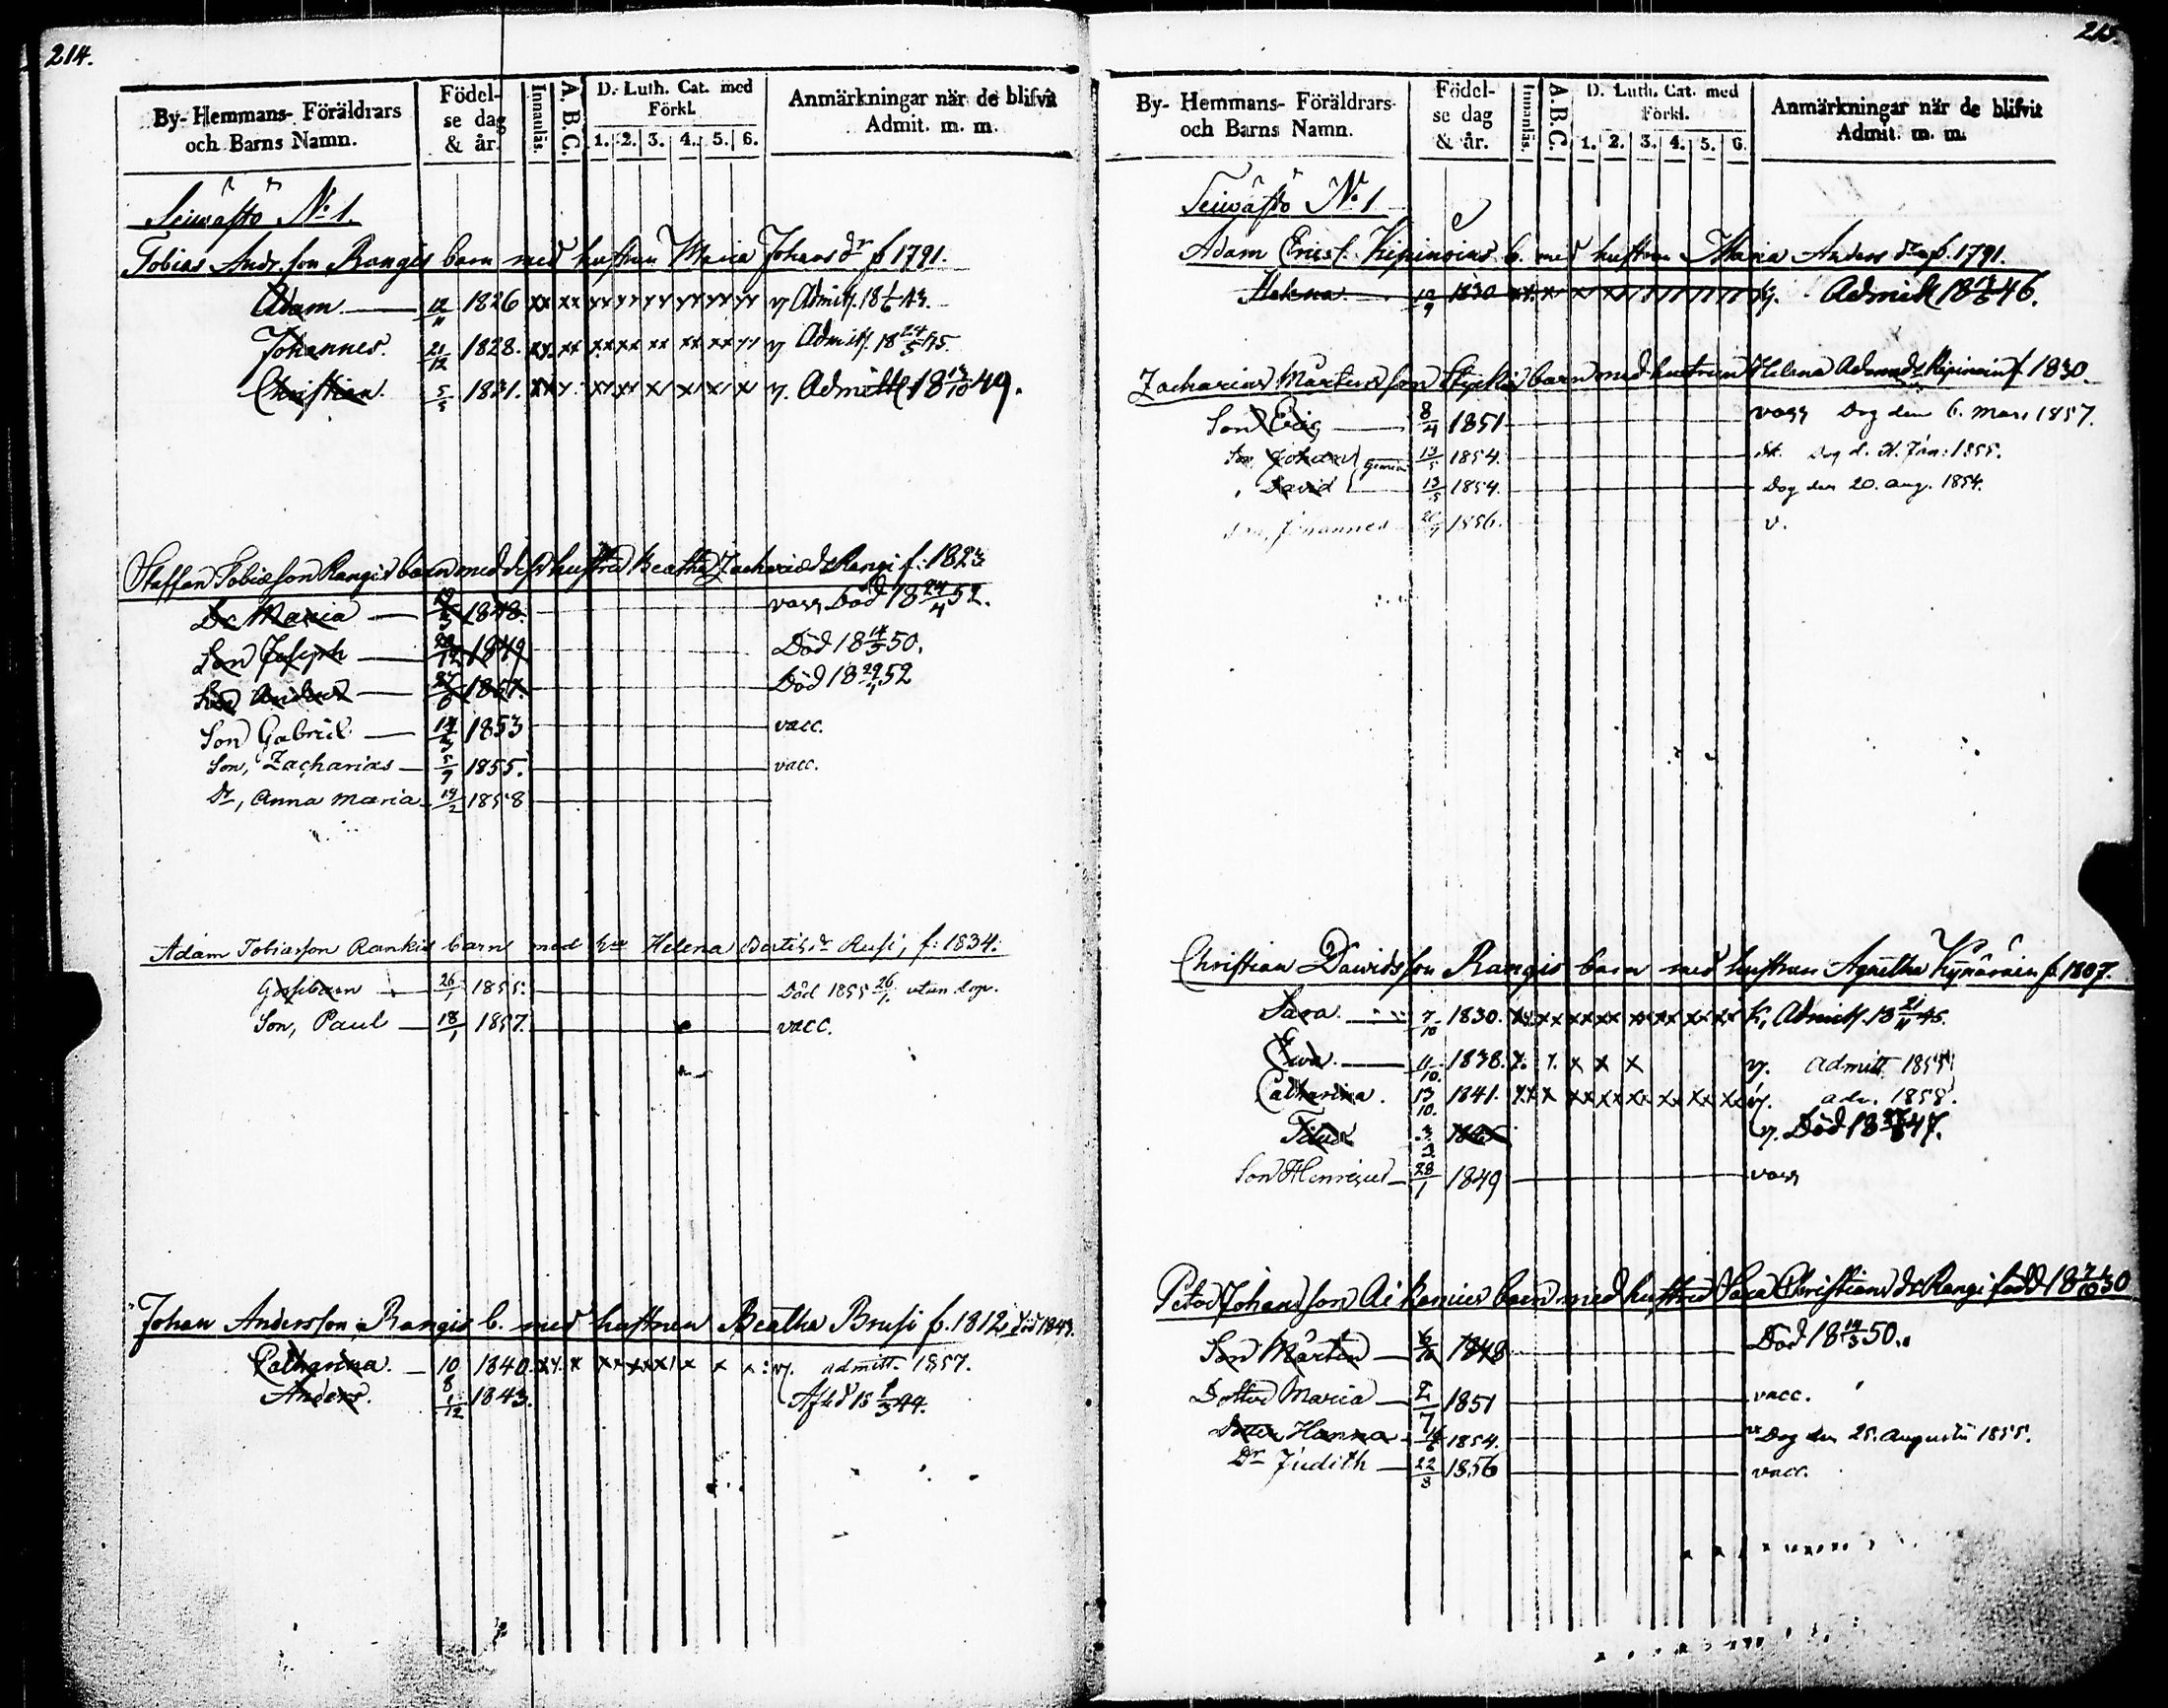 214.
By- Hemmans- Föräldrars och Barns Namn.
Födel- se dag & år.
Innanläs.
A. B. C.
D. Luth. Cat. med Förkl.
1. 2. 3. 4. 5. 6.
Anmärkningar när de blifvit Admit. m. m.
Seiwästö No 1.
Tobias Andr.son Rangis barn med hustrun Maria Johansdr f. 1791.
Adam. 12/11 1826 xx xx Admitt. 18 43.
Johannes. 21/12 1828. Admitt. 18 24/5 45.
Christian. 5/5 1831. Admitt 18 13/10 49.
Staffan Tobiasson Rangis barn med hustru Beatha Zachariedr Rangi f. 1823
Dr Maria 1848. vacc Död 18 24/4 52.
Son Joseph 1849 Död 18 14/3 50.
Son Anders 1851. Död 18 29/4 52
Son Gabriel 1853 vacc.
Son, Zacharias 5/9 1855. vacc.
Dr, Anna Maria 19/2 1858
Adam Tobiasson Rankis barn med Helena Bertilsdr Rusi, f. 1834.
Gossebarn 26/1 1855. Död 1855 26/1 utan dop.
Son, Paul 18/1 1857. vacc.
Johan Andersson Rangis b. med hustrun Beatha Brusi f. 1812, död 1843.
Catharina. 10/8 1840. admitt. 1857.
Anders. 1/12 1843. Afled 18 44.
215.
By- Hemmans- Föräldrars och Barns Namn.
Födel- se dag & år.
Innanläs.
A. B. C.
D. Luth. Cat. med Förkl.
1. 2. 3. 4. 5. 6.
Anmärkningar när de blifvit Admit. m. m.
Seiwästö No 1
Adam Erics. b. med hustrun Maria Andersdr f. 1791.
Helena. 1830 Admitt 18 46.
Zacharias Mårtensson barn med hustrun Helena Adamsdr f. 1830.
Son Eric 8/4 1851 vacc Dog den 6. Mars 1857.
Son Johan 13/5 1854. Dog d. Jan: 1855.
David 13/5 1854. Dog den 20. Aug. 1854.
Johannes 1856. v.
Christian Davidsson Rangis barn med hustrun Agnetha f. 1807.
Sara. 7/10 1830. Admitt. 18 21/11 45.
Ewa. 11/10. 1838. Admitt 1855
Catharina. 13/10. 1841. adm. 1858.
Död 18 47.
Son Henricus 28/1 1849 vacc
Petter Johansson barn med hustru Sara Christiansdr Rangi född 18 7/10 30
Son Mårten 1848 Död 18 14/3 50.
Dotter Maria 2/7 1851 vacc.
Dotter Hanna 1854. Dog den 25. Augusti 1855.
Dr Judith 22/8 1856 vacc.